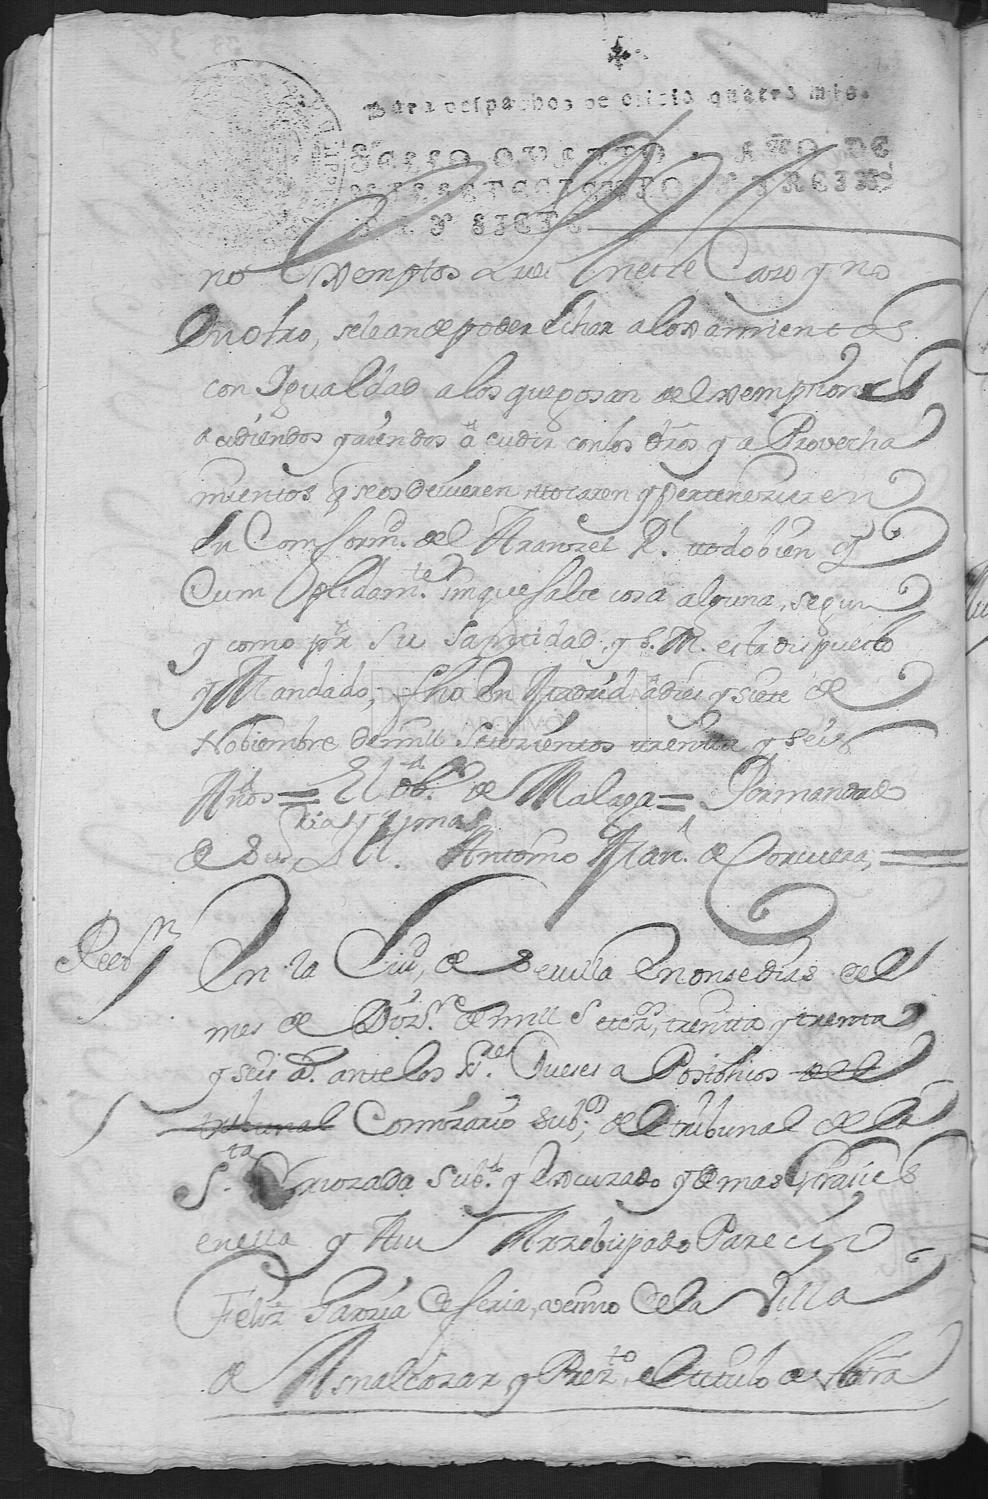 Para despachos de oficio quatro mrs.
SELLO QVARTO, AÑO DE
MIL SETECIENTOS Y TREIN
TA Y SIETE.
no Exemptos que en este Caso y no
En otro, se le an de poder Echar alojamientos
con Igualdad a los que gosan del exempcion
acudiendos y haiendos acudir con los dros y a Provecha
mientos q se os devieren tocaren y pertenezieren
En Comformd. del Aranzel Rl. todo bien y
Cumplidamte. sin que falte cosa alguna, segun
y como pr Su Santidad, y S. M. esta dispuesto
y Mandado, fho En Madrid a dies y siete de
Nobiembre de mill Setezientos treinta y seis
Años = El obpo. de Malaga = Por mandado
de Su Ilma. Antonio Man. de Corvera,
En la Ciud. de Sevilla En onse dias del
mes de Dizre. de mill Setezs. treinta y treinta
y seis as. ante los Sres. Jueses a Postolicos del
tribunal Comisario Subdo. del tribunal de la
Sta. Cruzada Subo. y Escusado y demas Grasias
en ella y Su Arzobispado Parecio
Felix Garzia de feria, vezino de la Villa
de Asnalcazar y Prezto. el titulo de Notra